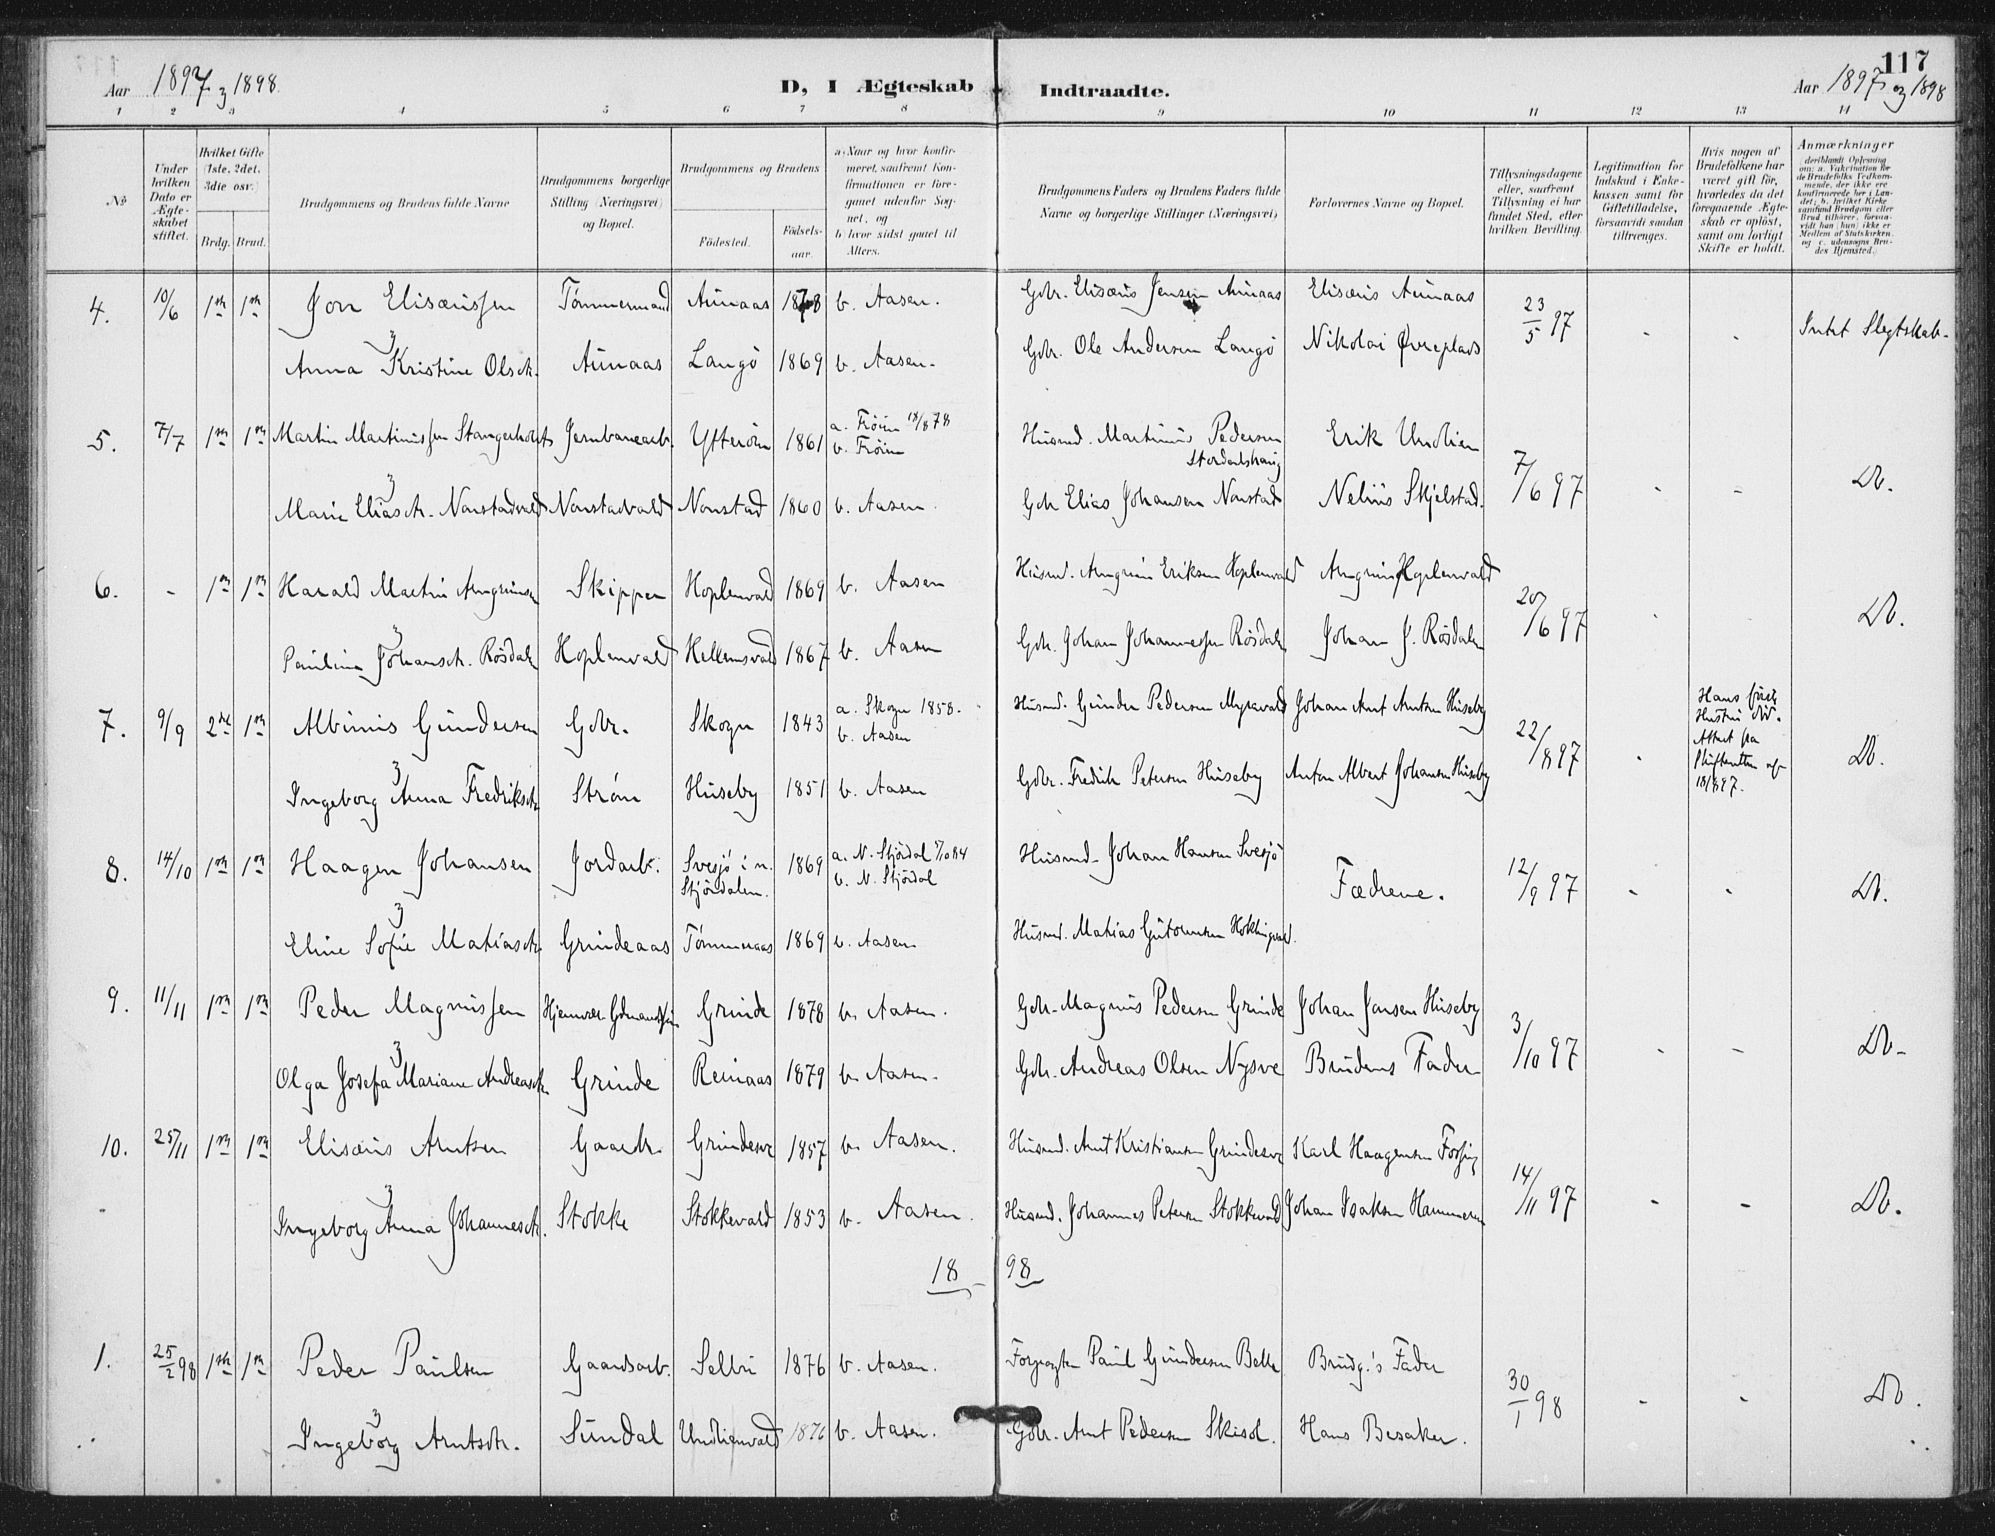 117
Aar 1897 og 1898. D, I Ægteskab Indtraadte. Aar 1897 og 1898
1 2 3 4 5 6 7 8 9 10 11 12 13 14
№
Under hvilken Dato er Ægteskabet stiftet.
Hvilket Gifte (1ste, 2det, 3die osv.)
Brdg. Brud.
Brudgommens og Brudens fulde Navne
Brudgommens borgerlige Stilling (Næringsvei) og Bopæl.
Brudgommens og Brudens
Fødested. Fødselsaar.
a) Naar og hvor konfirmeret, saafremt Konfirmationen er foregaaet udenfor Sognet, og
b) hvor sidst gaaet til Alters.
Brudgommens Faders og Brudens Faders fulde Navne og borgerlige Stillinger (Næringsvei)
Forlovernes Navne og Bopæl.
Tillysningsdagene eller, saafremt Tillysning ei har fundet Sted, efter hvilken Bevilling.
Legitimation for Indskud i Enkekassen samt for Giftetilladelse, forsaavidt saadan tiltrænges.
Hvis nogen af Brudefolkene har været gift før, hvorledes da det foregaaende Ægteskab er opløst, samt om lovligt Skifte er holdt.
Anmærkninger (deriblandt Oplysning om: a. Vakcination for de Brudefolks Vedkommende, der ikke ere konfirmerede her i Landet; b. hvilket Kirkesamfund Brudgom eller Brud tilhører, forsaavidt han (hun) ikke er Medlem af Statskirken, og c. udensogns Brudes Hjemsted.)
4. 10/6 1ste 1ste Jon Elisæussen Tømmermand Aunaas 1878 b. Aasen. Gdbr. Elisæus Jensen Aunaas Elisæus Aunaas 23/5 97 - - Intet Slegtskab.
Anna Kristine Olsdt. Aunaas Langö 1869 b. Aasen. Gdbr. Ole Andersen Langö Nikolai Øvreplads
5. 7/7 1ste 1ste Martin Martinussen Stangerholt Jernbanearb. Ytterøen 1861 a. Frøien 18/8 78 b. Frøien Husmd. Martinus Pedersen Stordalshaug Erik Undlien 7/6 97 - - Do.
Marie Eliasdt. Nonstadvald Nonstadvald Nonstad 1860 b. Aasen. Gdbr Elias Johansen Nonstad Nelius Skjelstad.
6. - 1ste 1ste Harald Martin Arngrimsen Skipper Hoplenvald 1869 b. Aasen Husmd. Arngrim Eriksen Hoplenvald Arngrim Hoplenvald 20/6 97 - - Do.
Pauline Johansdt. Rösdalen Hoplenvald Hellemsvald 1867 b. Aasen Gdbr. Johan Johannessen Rösdalen Johan J. Rösdalen
7. 9/9 2det 1ste Albinus Gundersen Gdbr. Skogn 1843 a. Skogn 1858. b. Aasen Husmd. Gunder Pedersen Myrsvald Johan Arnt Arntsen Huseby 22/8 97 - Hans første Hustru död. Attest fra Skifteretten af 18/8 97. Do.
Ingeborg Anna Fredriksdt. Strøm Huseby 1851 b. Aasen Gdbr. Fredrik Petersen Huseby Anton Albert Johansen Huseby
8. 14/10 1ste 1ste Haagen Johansen Jordarb. Svesjö i n. Stjördalen. 1869 a. N. Stjördal 5/10 84 b. N. Stjördal Husmd. Johan Hansen Svesjö Fædrene. 12/9 97 - - Do.
Eline Sofie Matiasdt. Grindeaas Tömmeraas 1869 b. Aasen Husmd. Matias Guttormsen Hoklingvald.
9. 11/11 1ste 1ste Peder Magnussen Hjemvær. Gdmandssøn Grinde 1878 b. Aasen. Gdbr. Magnus Pedersen Grinde Johan Jensen Huseby 3/10 97 - - Do.
Olga Josefa Mariane Andreasdt. Grinde Reinaas 1879 b. Aasen. Gdbr. Andreas Olsen Nysve Brudens Fader
10. 25/11 1ste 1ste Elisæus Arntsen Gaardbr. Grindesve 1857 b. Aasen. Husmd. Arnt Kristiansen Grindesve Karl Haagensen Fossing 14/11 97 - - Do.
Ingeborg Anna Johannesdt. Stokke Stokkevald 1853 b. Aasen. Husmd. Johannes Petersen Stokkevald Johan Isaksen Hammeren
1898
1. 25/2 98 1ste 1ste Peder Paulsen Gaardsarb. Selbu 1876 b. Aasen. Forpagter Paul Gundersen Belle Brudg.'s Fader 30/1 98 - - Do.
Ingeborg Arntsdt. Sundal Undlienvald 1876 b. Aasen. Gdbr. Arnt Pedersen Skisol. Hans Besaker.